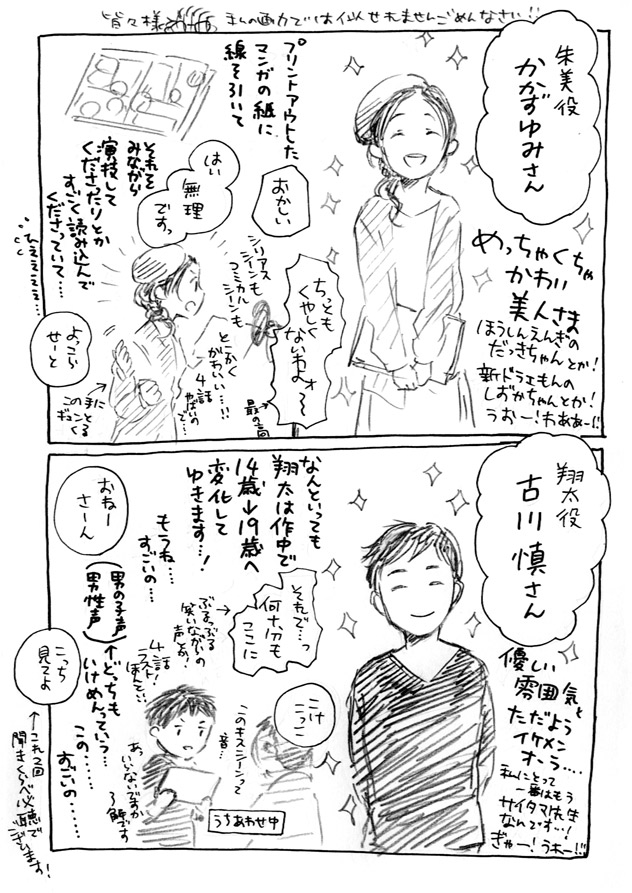 皆々様
まんの画力では似せれませんごめんなさい!!
朱美役
かかずゆみさん
めっちゃくちゃ
かわいい
美人さま
ほうしんえんぎの
だっきちゃんとか!
新ドラえもんの
しずかちゃんとか!
うおー!わああー!!
プリントアウトした
マンガの紙に
線を引いて
それを
みながら
演技して
くださったりとか
すごく読み込んで
くださっていて…
ひえええええ…
おかしい
はい
無理
ですっ
シリアス
シーンも
コミカル
シーンも
とにかく
かわいい…!!
4話
やばいの
で…
ちっとも
くやしく
ないわよォ〜
最の高
よっこら
せーと
この手に
このまんとくる
翔太役
古川 慎さん
優しい
雰囲気と
ただよう
イケメン
オーラ….
私にとって
一番はもう
サイタマ先生
なんです…!
ぎゃー!うおー!!!
なんといっても
翔太は作中で
14歳→19歳へ
変化して
ゆきます…!
もうね…
すごいの…
(男の子声
男性声)
↑どっちも
いけめんっていう…
この……
すごいの……
おねー
さーん
それで…っ
何十分も
ここに
ぷるっぷる
笑いながらの
声とか!
4話
ラスト
こけ
こっこ
こっち
見てよ
↑これ2回
聞きくらべ必聴で
ございます!
このキスシーンって
音…
あっ
いらないですか
了解です
うちあわせ中